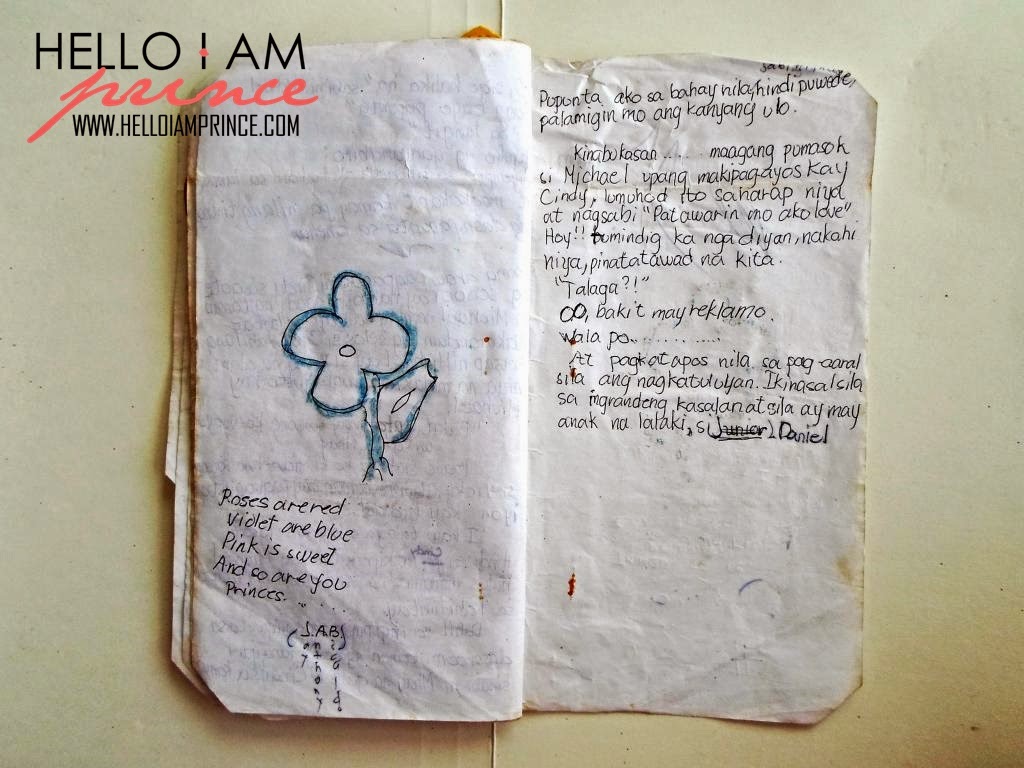 HELLO I AM
prince
WWW.HELLOIAMPRINCE.COM
Roses are red
Violet are blue
Pink is sweet
And so are you
Princes.......
(J.A.B)
Cindy
Pupunta ako sa bahay nila, hindi puwede,
palamigin mo ang kanyang ulo.
Kinabukasan ..... maagang pumasok
si Michael upang makipagayos kay
Cindy, lumuhod ito saharap niya
at nagsabi "Patawarin mo ako love"
Hoy!! tumindig ka nga diyan, nakahi
niya, pinatatawad na kita.
"Talaga?!"
OO, bakit may reklamo.
Wala po............
At pagkatapos nila sa pag-aaral
sila ang nagkatuluyan. Ikinasal sila
sa ingrandeng kasalan at sila ay may
anak na lalaki, si Junior, Daniel